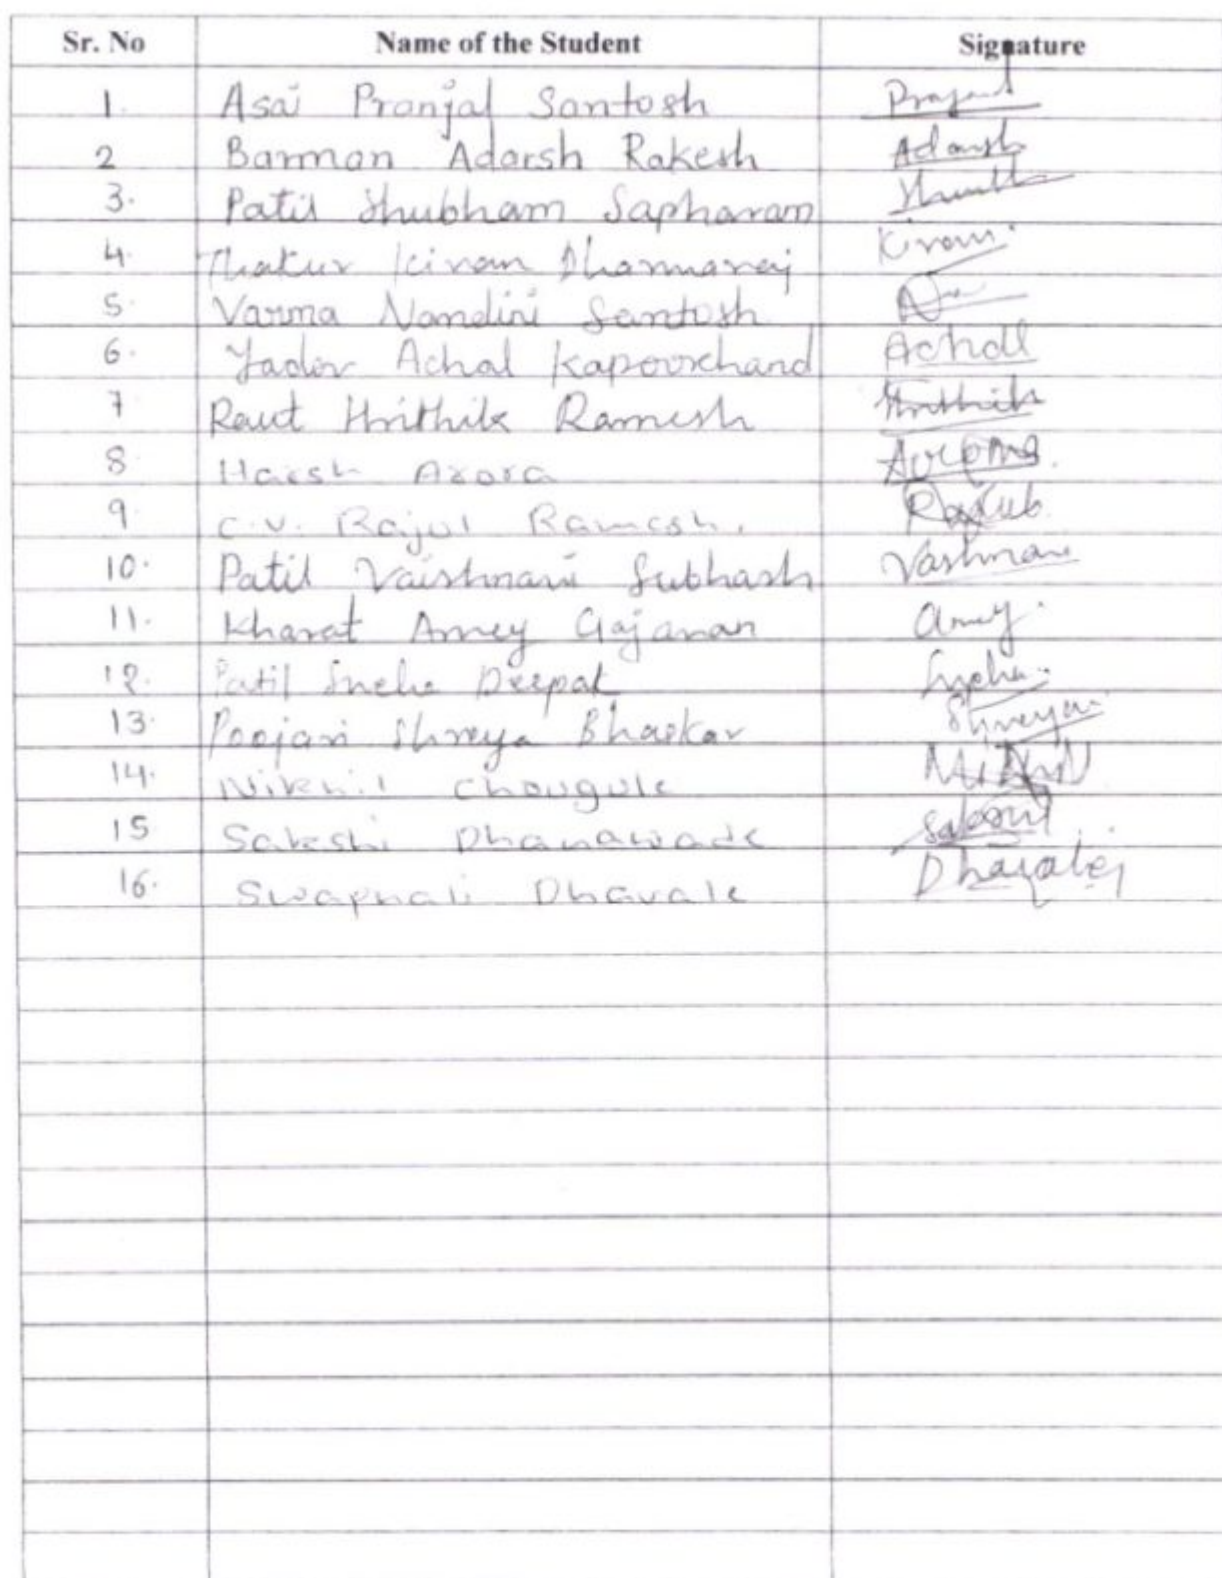 Sr. No Name of the Student Signature
1. Asai Pranjal Santosh
2 Barman Adarsh Rakesh Adarsh
3. Patil Shubham Sapharam
4. Thakur Kiran Dharmaraj Kiran
5. Varma Nandini Santosh
6. Yadav Achal Kapoorchand Achal
7 Raut Hrithik Ramesh Hrithik
8 Harsh Arora
9. C.V. Rajul Ramesh.
10. Patil Vaishnavi Subhash
11. Kharat Amey Gajanan Amey.
12. Patil Sneha Deepak Sneha
13. Poojari Shreya Bhaskar Shreya
14. Nikhil Chougule
15 Sakshi Dhanawade
16. Swapnali Dhavale